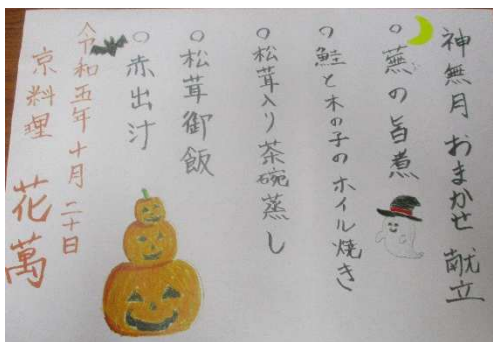 神無月 おまかせ 献立
○ 蕪の旨煮
○ 鮭と木の子のホイル焼き
○ 松茸入り茶碗蒸し
○ 松茸御飯
○ 赤出汁
令和五年十月二十日
京料理 花萬